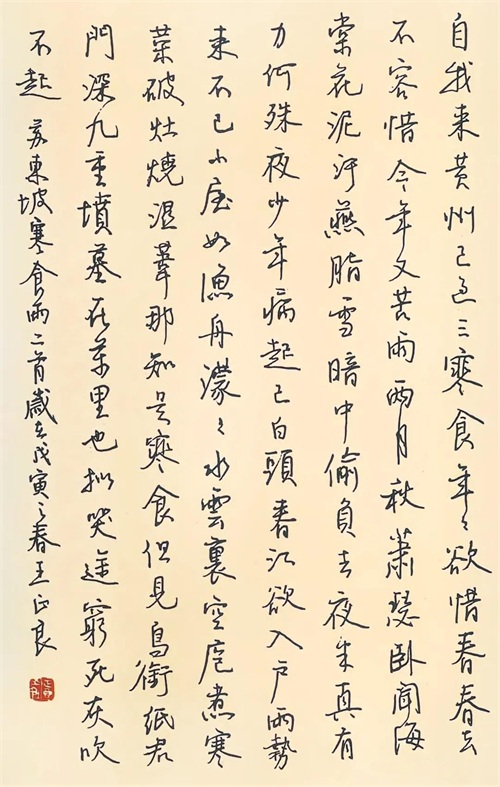 自我来黄州已过三寒食年々欲惜春春去
不容惜今年又苦雨兩月秋蕭瑟卧聞海
棠花泥汙燕脂雪暗中偷負去夜半真有
力何殊夜少年病起已白頭春江欲入户雨勢
来不已小屋如漁舟濛々水雲裏空庖煮寒
菜破灶燒湿葦那知是寒食但見烏銜紙君
門深九重墳墓在萬里也拟哭途窮死灰吹
不起 苏東坡寒食雨二首歲在戊寅之春王正良